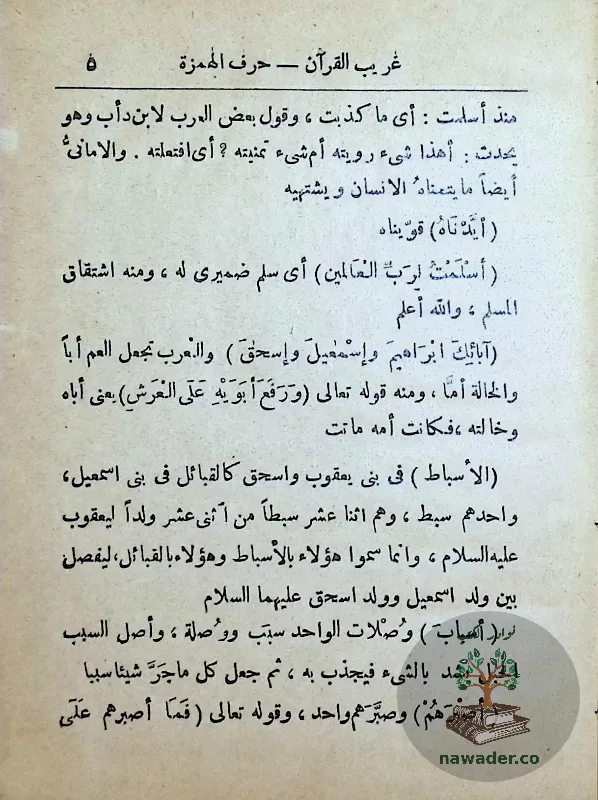 غريب القرآن — حرف الهمزة ٥
منذ أسلمت : أى ما كذبت ، وقول بعض العرب لابن دأب وهو
يحدث : أهذا شىء رويته أم شىء تمنيته ؟ أى افتعلته . والامانىُّ
أيضاً ما يتمناه الانسان ويشتهيه
( أَيَّدْنَاهُ ) قوّيناه
( أَسْلَمْتُ لِرَبِّ الْعَالَمِين ) أى سلم ضميرى له ، ومنه اشتقاق
المسلم ، والله أعلم
( آبَائِكَ ابْرَاهِيمَ وَإِسْمٰعِيلَ وَإِسحٰقَ ) والعرب تجعل العم أباً
والخالة أمًّا ، ومنه قوله تعالى ( وَرَفَعَ أَبَوَيْهِ عَلَى الْعَرْشِ ) يعنى أباه
وخالته ، فكانت أمه ماتت
( الأسباط ) فى بنى يعقوب واسحق كالقبائل فى بنى اسمعيل ،
واحدهم سبط ، وهم اثنا عشر سبطاً من اثنى عشر ولداً ليعقوب
عليه السلام ، وانما سموا هؤلاء بالأسباط وهؤلاء بالقبائل ، ليفصل
بين ولد اسمعيل وولد اسحق عليهما السلام
( أَسبابَ ) وُصْلات الواحد سبَب ووُصلة ، وأصل السبب
الحبل يشد بالشىء فيجذب به ، ثم جعل كل ما جَرَّ شيئا سببا
أَصْبَرَهُمْ ) وصبَّرَهم واحد ، وقوله تعالى ( فَمَا أصبرهم عَلَى
نوادر
nawader.co